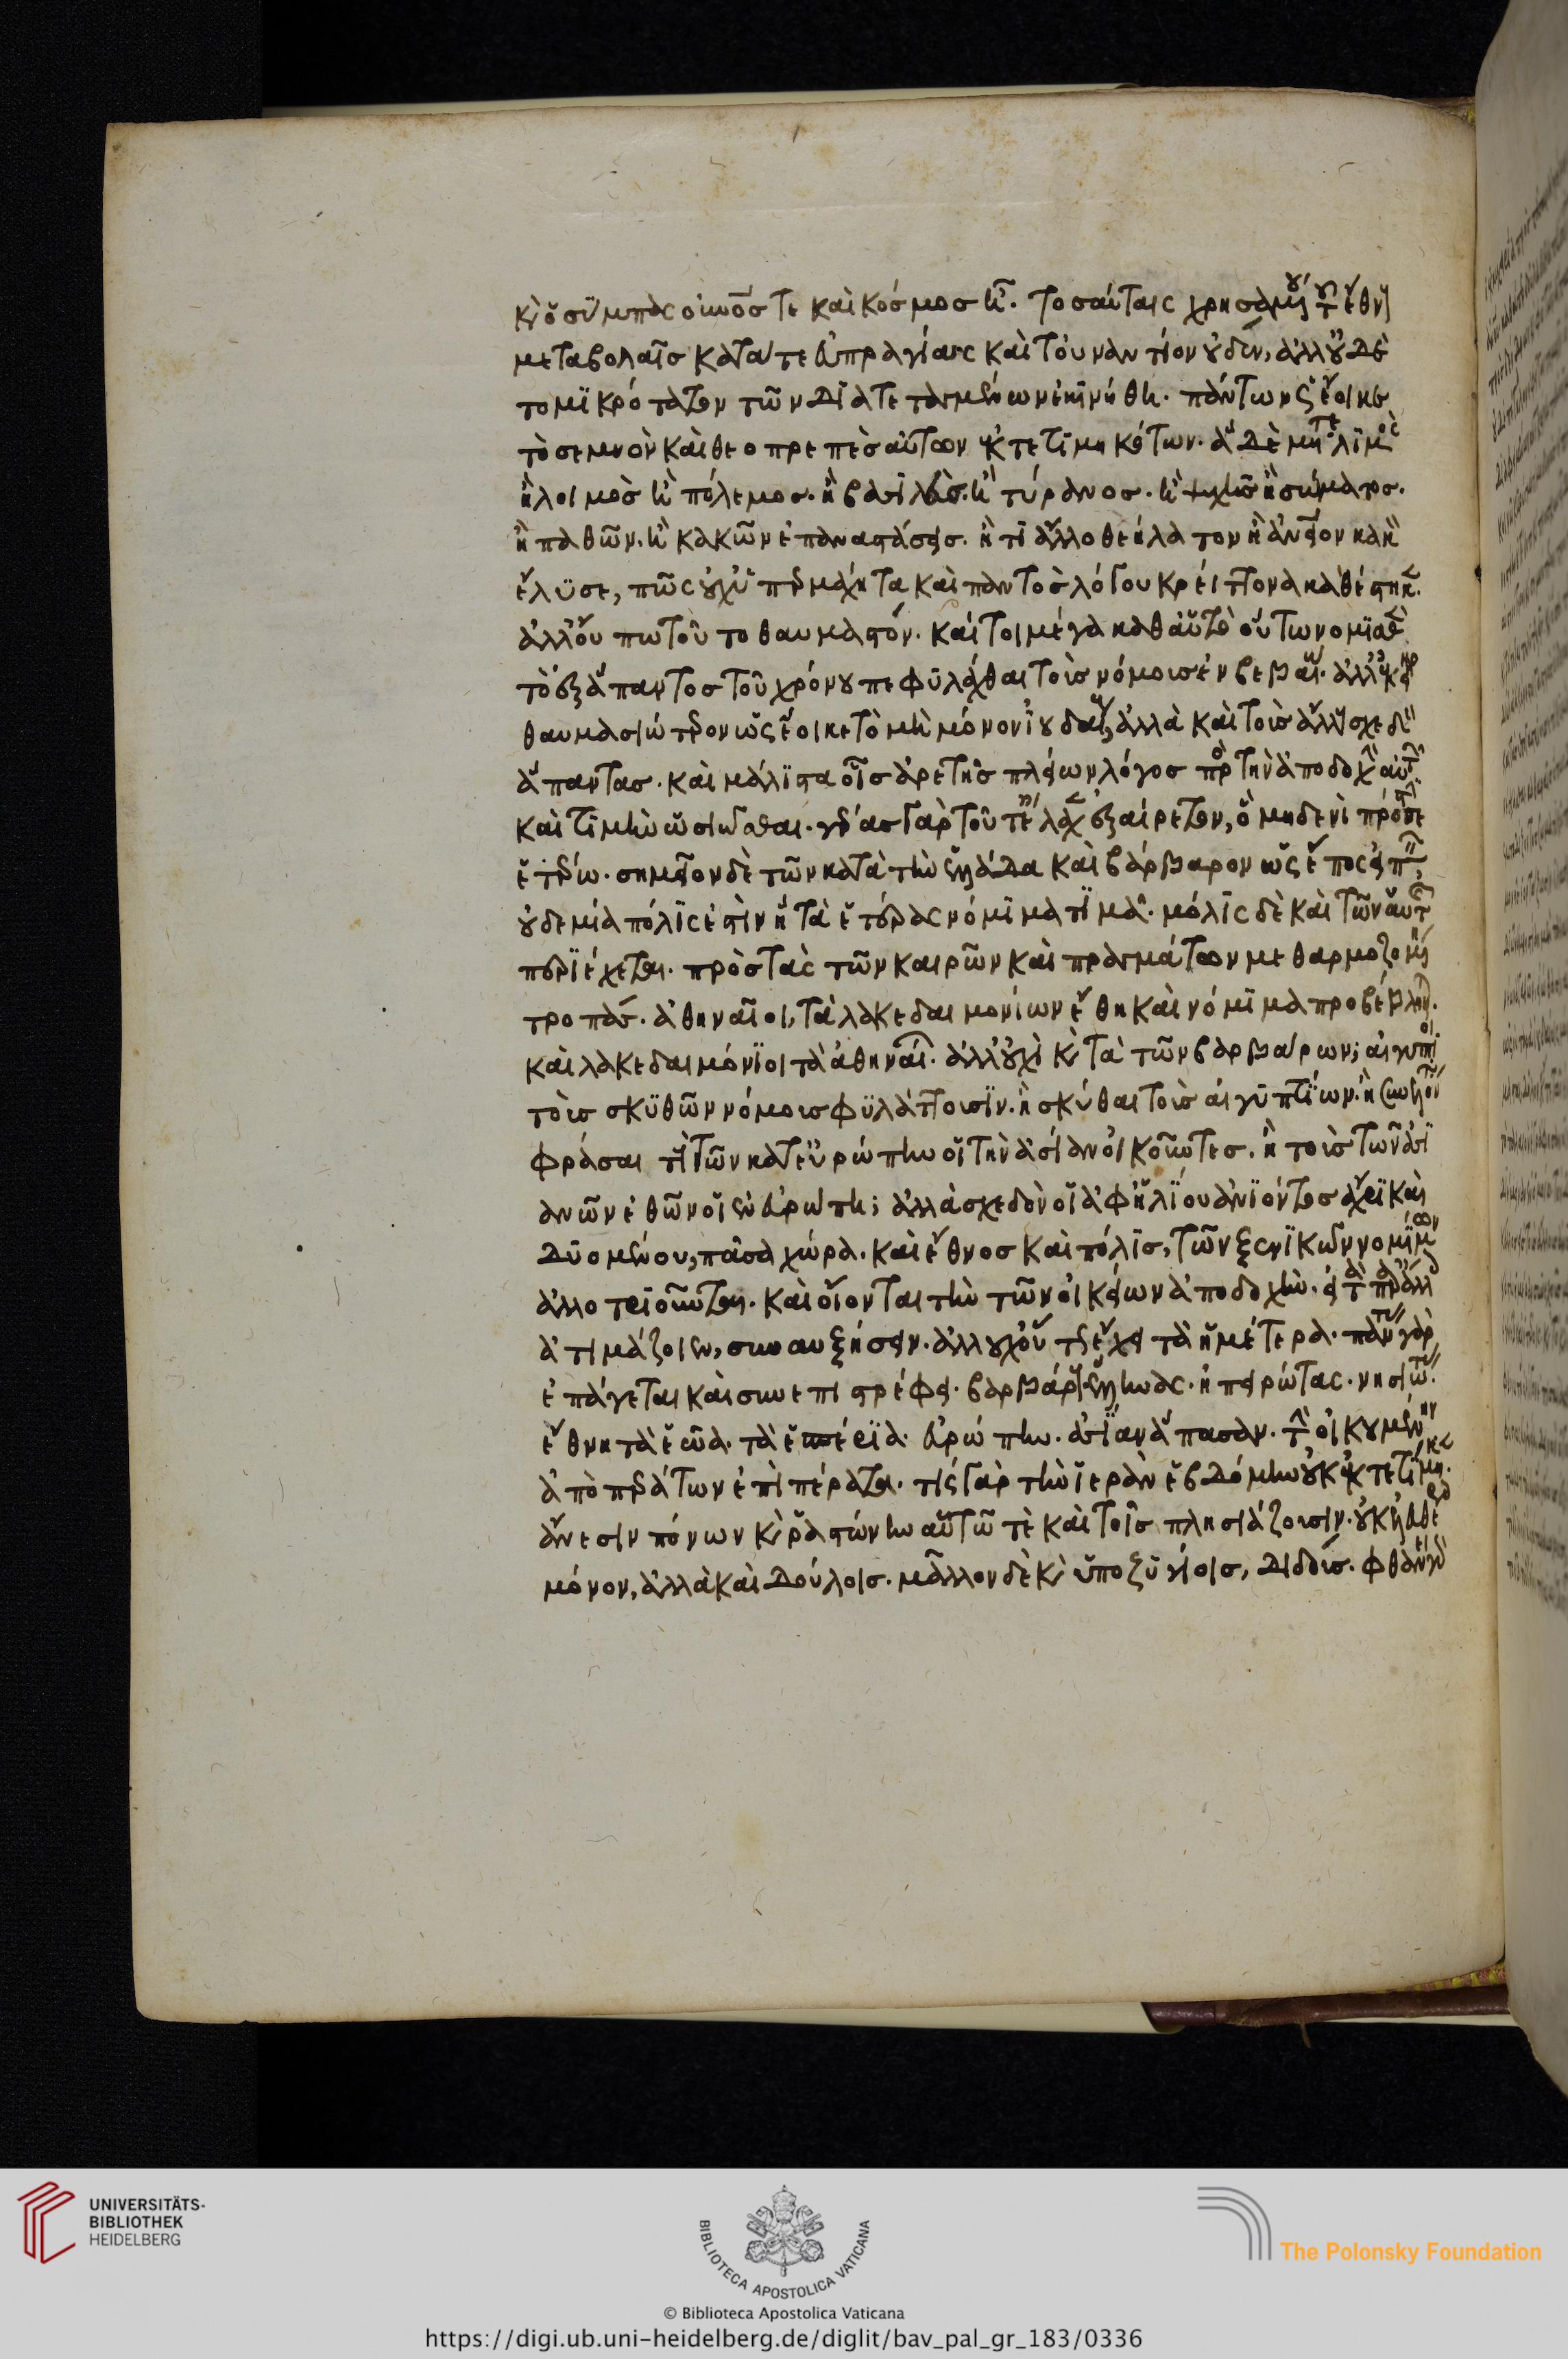 καὶ ὁ σύμπας οὐνός τε καὶ κόσμος ἦ. τοσαύταις χρησαμένου τοῦ ἔθνους
μεταβολαῖς κατά τε εὐπραγίας καὶ τοὐναντίον οὐδὲν, ἀλλ' οὐδὲ
το μικρότατον τῶν διατεταγμένων ἐκινήθη. πάντων ὡς ἔοικε
τὸ σεμνὸν καὶ θεοπρεπὲς αὐτῶν ἐκτετιμηκότων. ἃ δὲ μήτε λιμὸς
ἢ λοιμὸς ἢ πόλεμος. ἢ βασιλεὺς. ἢ τύραννος. ἢ ψυχῆς ἢ σώματος.
ἢ παθῶν. ἢ κακῶν ἐπαναστάσεις. ἤ τι ἄλλο θεήλατον ἢ ἀνθρώπειον κακὸν
ἔλυσε, πῶς οὐχὶ περιμάχητα καὶ παντὸς λόγου κρείττονα καθέστηκεν.
ἀλλ' οὔπω τοῦτο θαυμαστόν. καίτοι μέγα καθ' αὑτὸ οὕτω νομισθὲν
τὸ ἐξ ἅπαντος τοῦ χρόνου πεφυλάχθαι τοὺς νόμους ἐν βεβαίῳ. ἀλλ' ἐκεῖνο
θαυμασιώτερον ὡς ἔοικε τὸ μὴ μόνον ἰουδαίους, ἀλλὰ καὶ τοὺς ἄλλους σχεδὸν
ἅπαντας. καὶ μάλιστα οἷς ἀρετῆς πλείων λόγος πρὸς τὴν ἀποδοχὴν αὐτῶν
καὶ τιμὴν ὡσιῶσθαι. γέρας γὰρ τοῦτ' ἔλαχεν ἐξαίρετον, ὃ μηδενὶ πρόσεστιν
ἑτέρω. σημεῖον δὲ τῶν κατὰ τὴν ἑλλάδα καὶ βάρβαρον ὡς ἔπος εἰπεῖν,
οὐδεμία πόλις ἐστὶν ἣ τὰ ἑτέρας νόμιμα τιμᾶ. μόλις δὲ καὶ τῶν αὑτῆς
περιέχεται. πρὸς τὰς τῶν καιρῶν καὶ πραγμάτων μεθαρμοζομένη
τροπάς. ἀθηναῖοι, τὰ λακεδαιμονίων ἔθη καὶ νόμιμα προβέβληνται.
καὶ λακεδαιμόνιοι τὰ ἀθηναίων. ἀλλ' οὐχὶ καὶ τὰ τῶν βαρβάρων; αἰγύπτιοι
τοὺς σκυθῶν νόμους φυλάττουσιν. ἢ σκύθαι τοὺς αἰγυπτίων. ἢ συνελόντι
φράσαι τοὺς τῶν κατ' εὐρώπην οἱ τὴν ἀσίαν οἰκοῦντες. ἢ τοὺς τῶν ἀσι
ανῶν ἐθνῶν οἱ ἐν εὐρώπη; ἀλλὰ σχεδὸν οἱ ἀφ' ἡλίου ἀνιόντος ἄχρι καὶ
δυομένου, πᾶσα χώρα. καὶ ἔθνος καὶ πόλις, τῶν ξενικῶν νομίμων
ἀλλοτριοῦνται. καὶ οἴονται τὴν τῶν οἰκείων ἀποδοχὴν. εἰ τὰ παρὰ ἄλλοις
ἀτιμάζοιεν, συναυξήσειν. ἀλλ' οὐχ οὕτως ἔχει τὰ ἡμέτερα. πάντας γὰρ
ἐπάγεται καὶ συνεπιστρέφει. βαρβάρους. ἕλληνας. ἠπειρώτας. νησιώτας.
ἔθνη τὰ ἑῶα. τὰ ἑσπέρια. εὐρώπην. ἀσίαν ἅπασαν. τὴν οἰκουμένην
ἀπὸ περάτων ἐπὶ πέρατα. τίς γὰρ τὴν ἱερὰν ἑβδόμην οὐκ ἐκτετίμηκεν.
ἄνεσιν πόνων καὶ ῥαστώνην αὑτῶ τὲ καὶ τοῖς πλησιάζουσιν. οὐκ ἐλευθέροις
μόνον, ἀλλὰ καὶ δούλοις. μᾶλλον δὲ καὶ ὑποζυγίοις, διδούς. φθάνει γὰρ
UNIVERSITÄTS-
BIBLIOTHEK
HEIDELBERG
BIBLIOTECA APOSTOLICA VATICANA
The Polonsky Foundation
© Biblioteca Apostolica Vaticana
https://digi.ub.uni-heidelberg.de/diglit/bav_pal_gr_183/0336